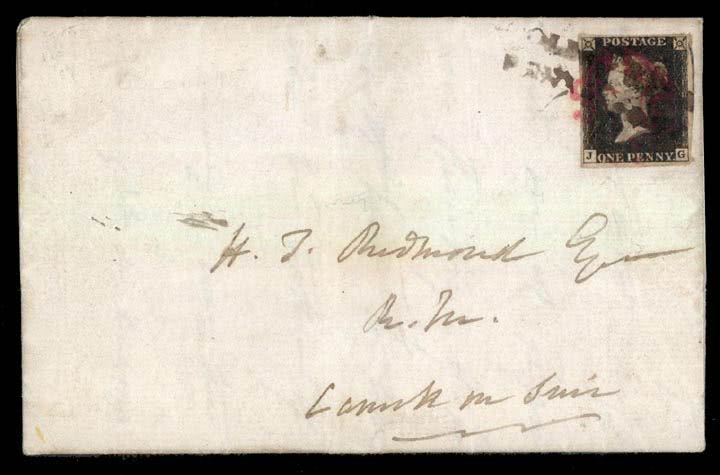 POSTAGE
J ONE PENNY G
H. J. Redmond Esq
R. M.
Carrick on Suir